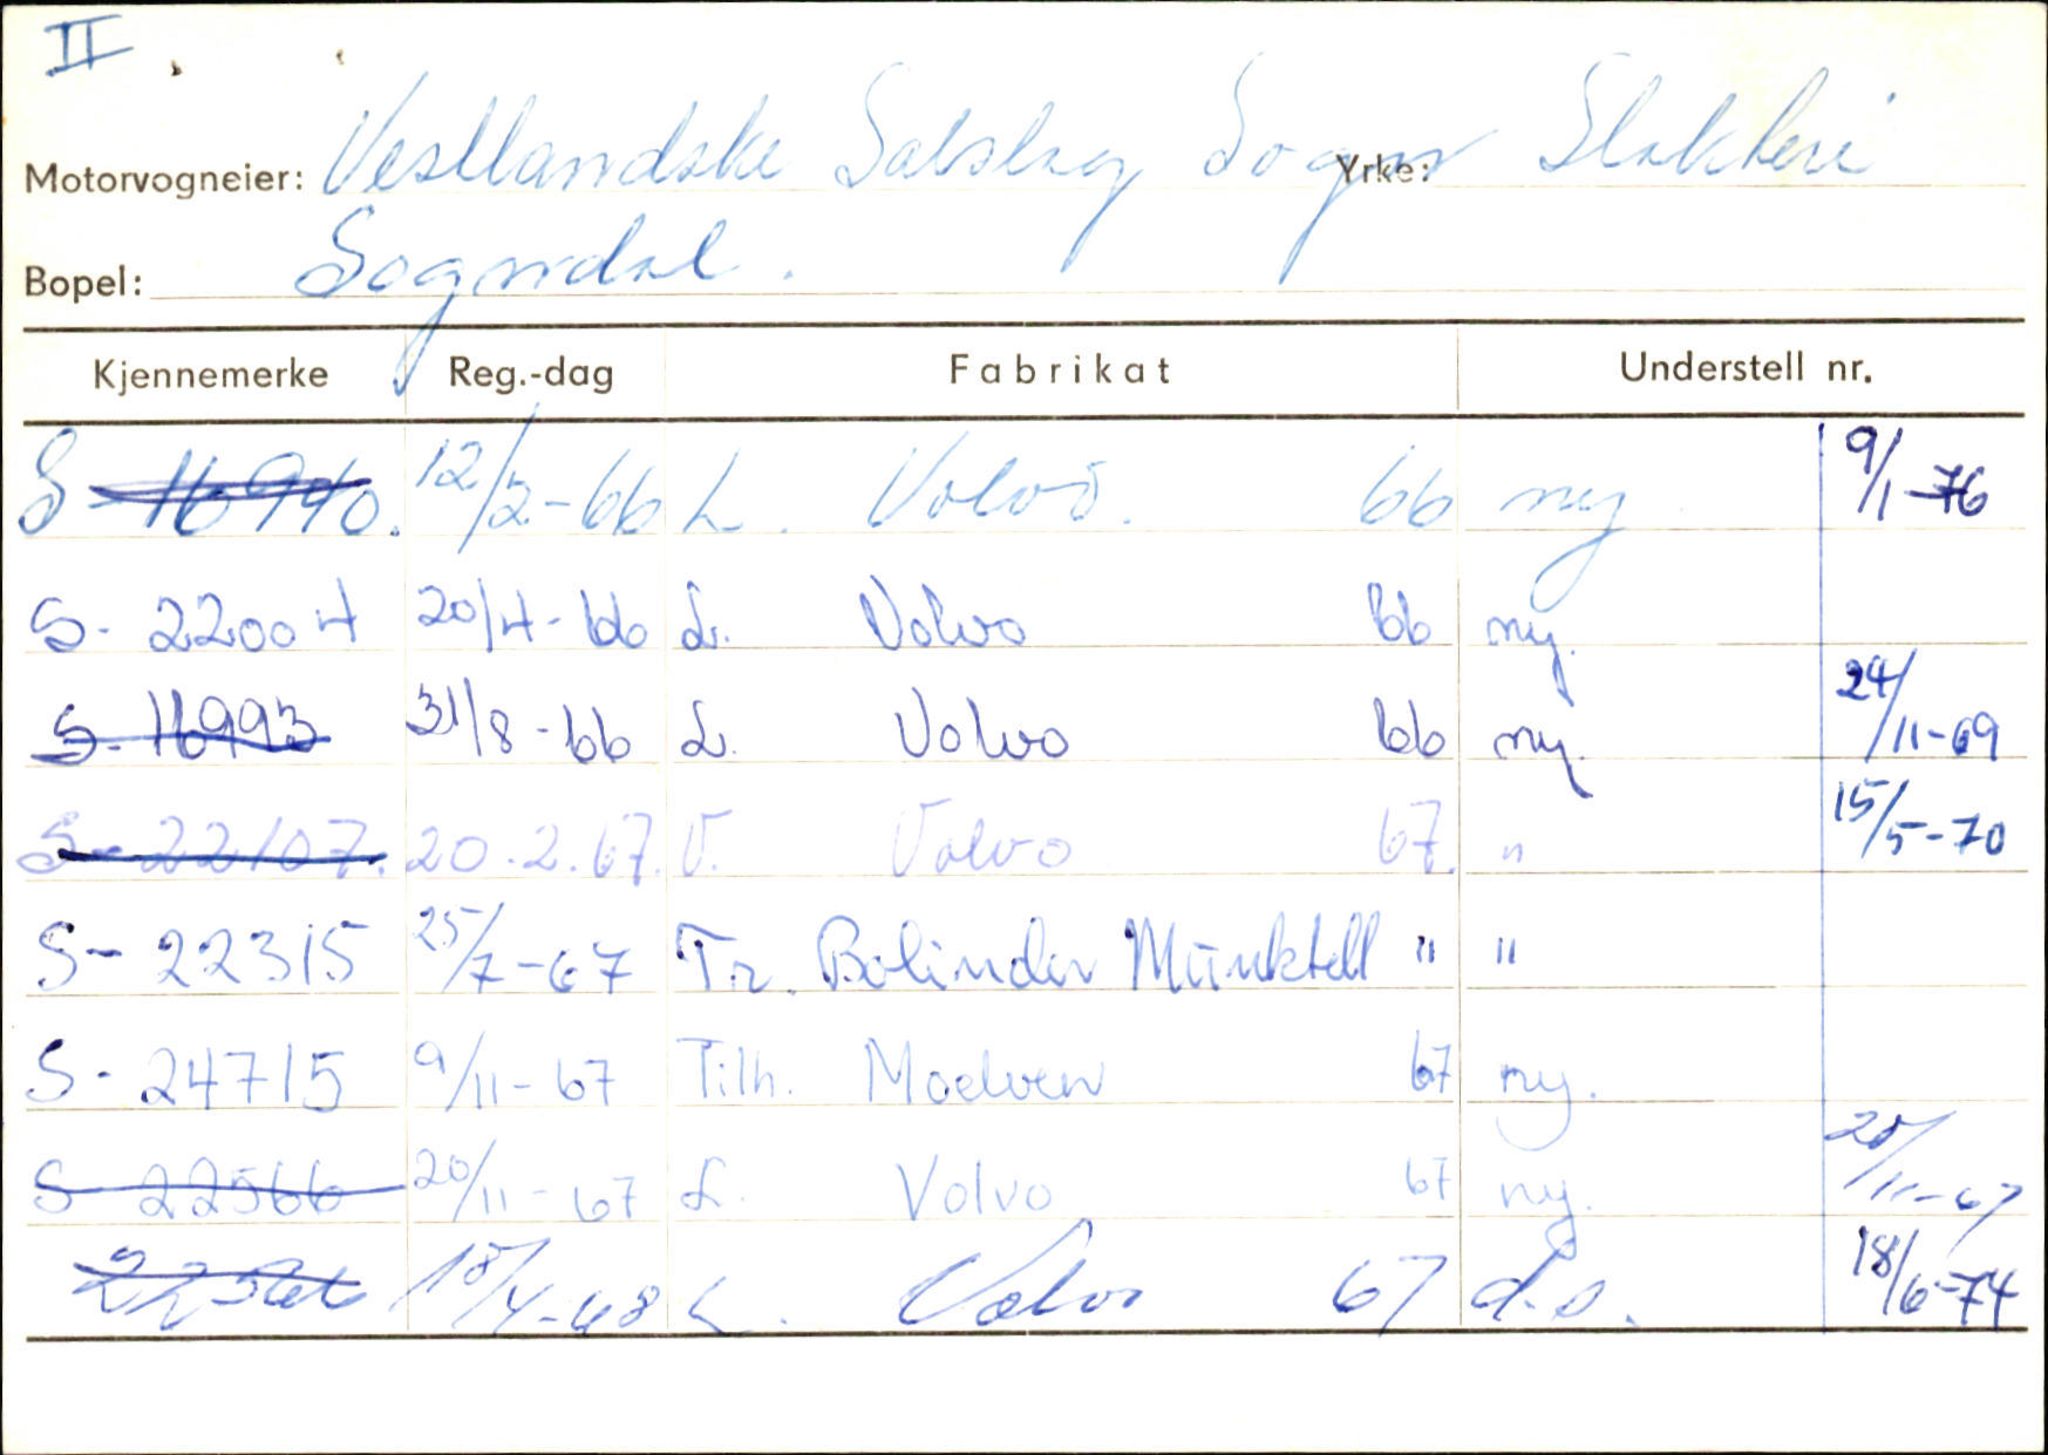 II
Motorvogneier: Vestlandske Salslag Sogn Yrke: Slakteri
Bopel: Sogndal.
Kjennemerke Reg.-dag Fabrikat Understell nr.
S-16940. 12/2-66 L. Volvo. 66 ny 9/1-76
S-22004 20/4-66 L. Volvo 66 ny.
S-16993 31/8-66 L. Volvo 66 ny. 24/11-69
S-22107. 20.2.67. V. Volvo 67. " 15/5-70
S-22315 25/7-67 Tr. Bolinder Munktell " "
S-24715 9/11-67 Tilh. Moelven 67 ny.
S-22566 20/11-67 L. Volvo 67 ny. 20/11-67
18/4-68 L. Volvo 67 d.o. 18/6-74